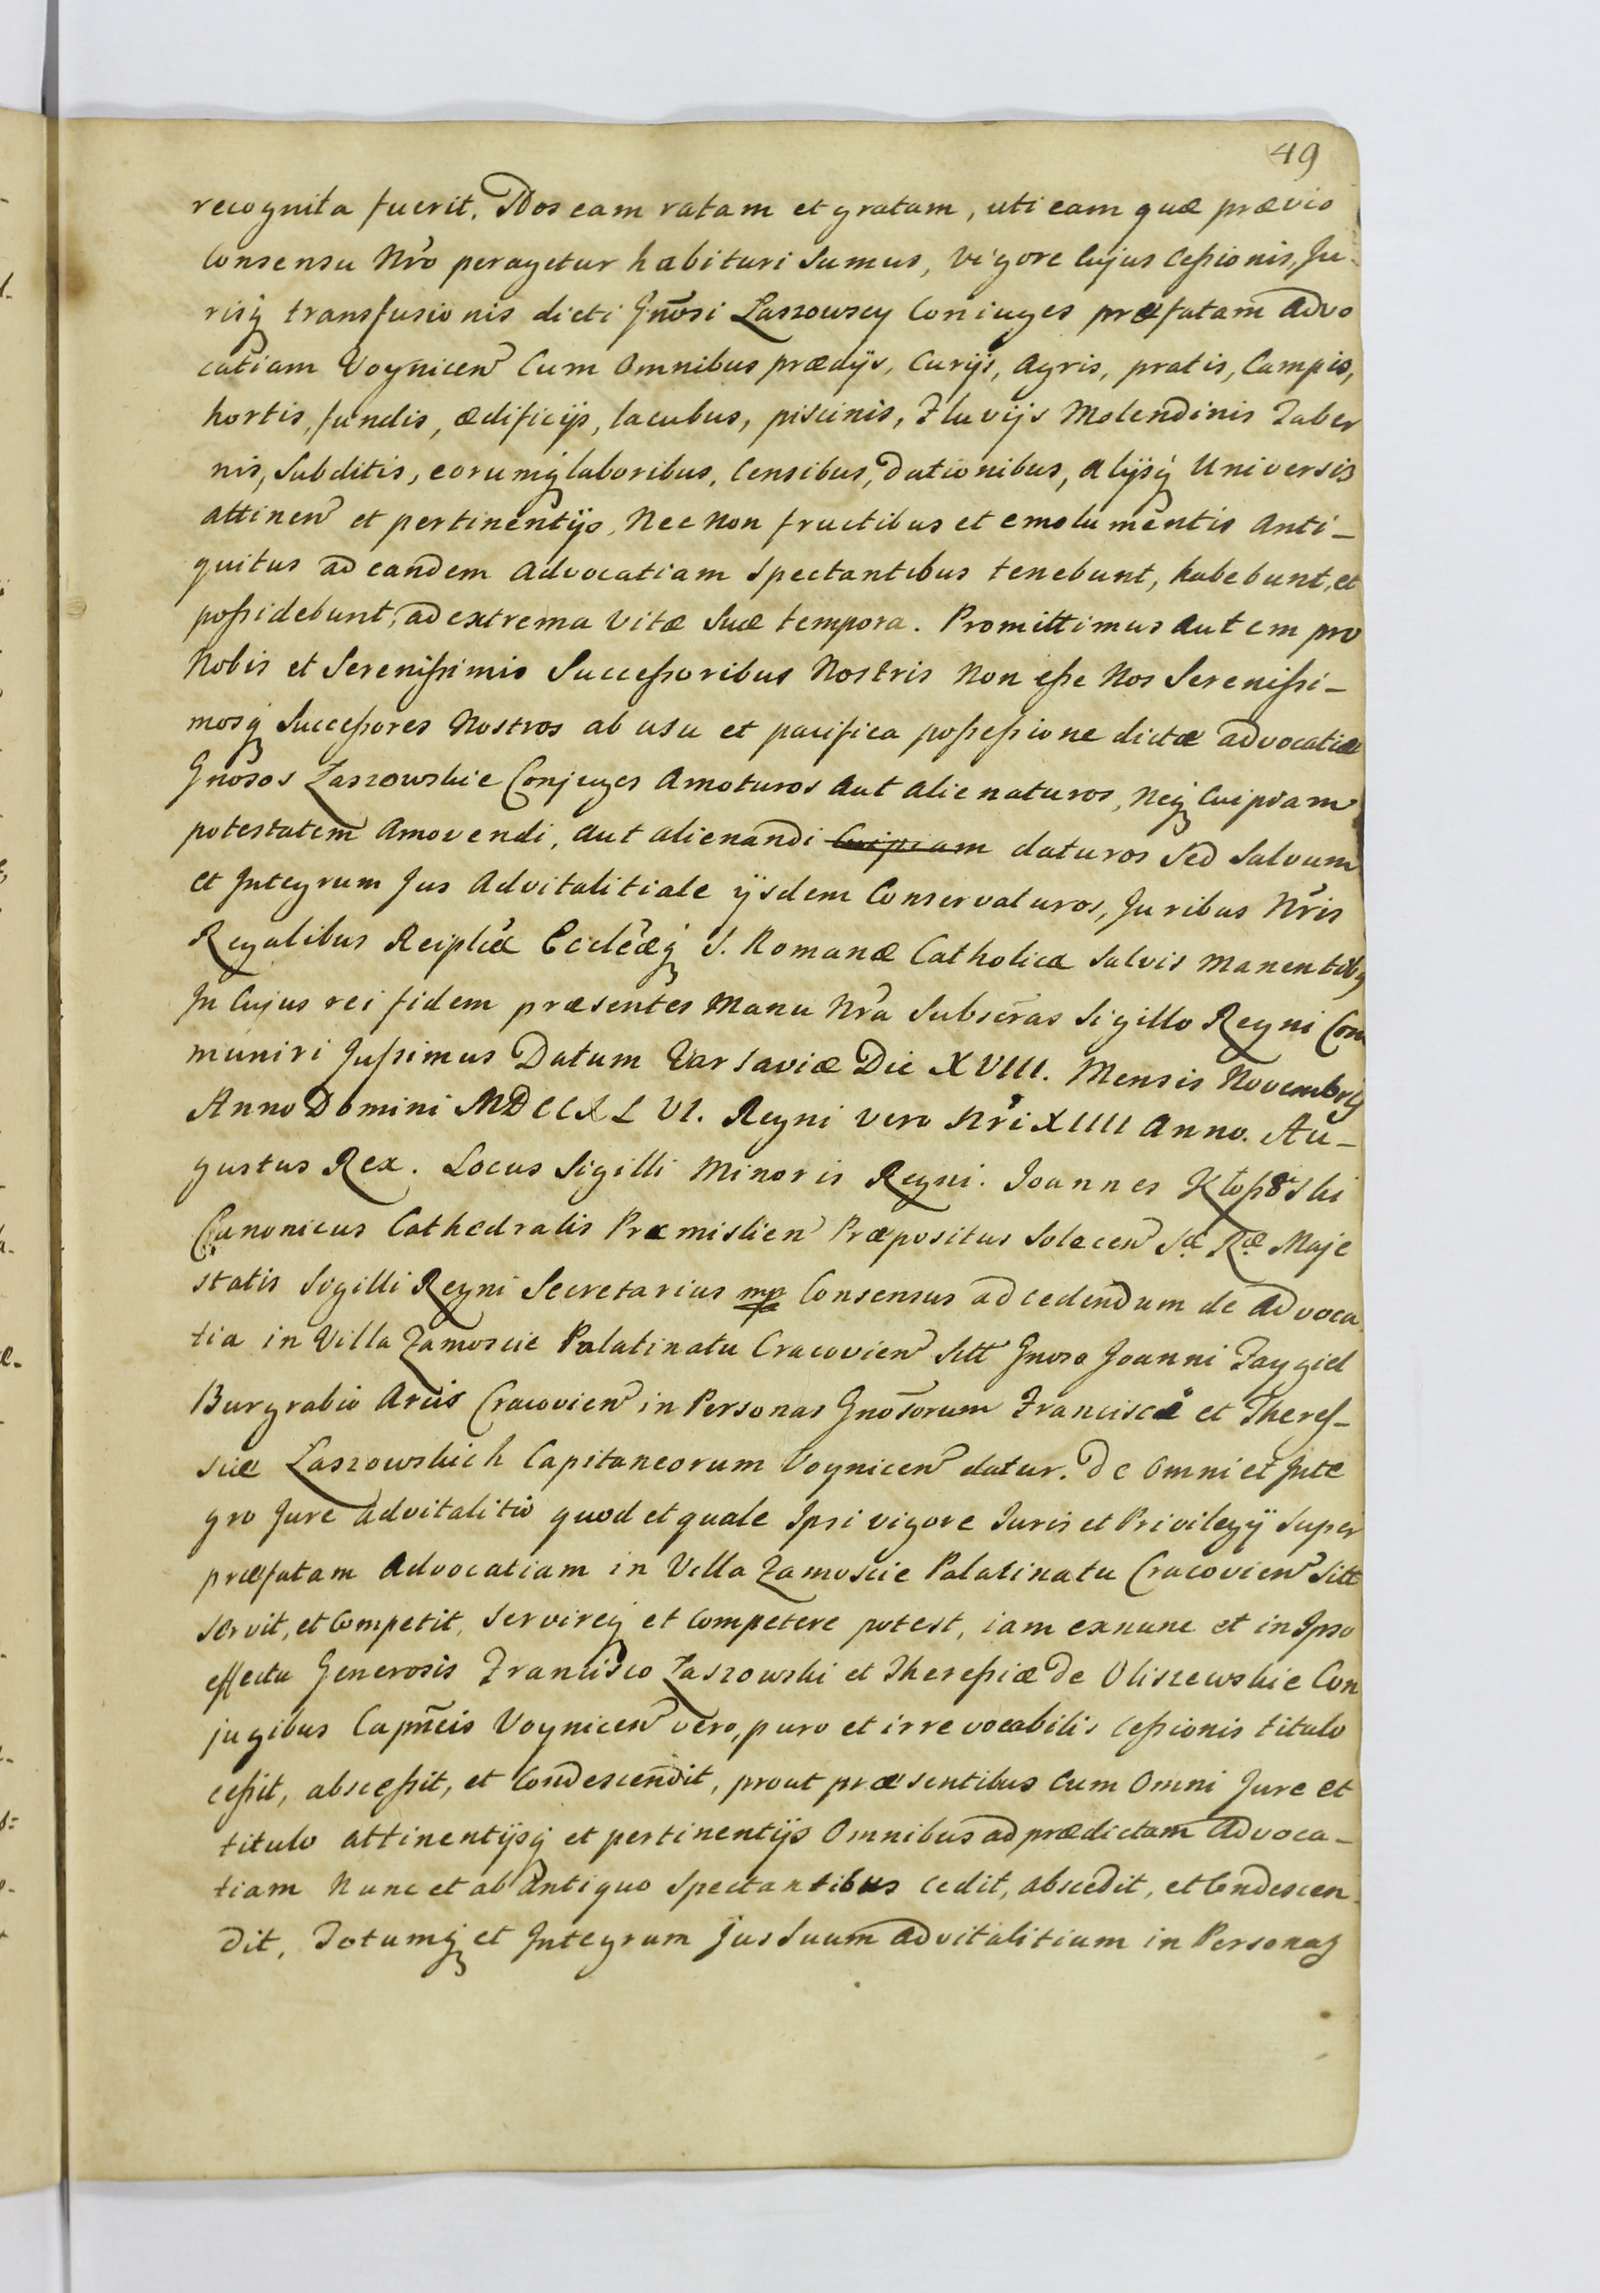 49
recognita fuerit. Nos eam ratam et gratam, uti eam quæ prævio
Consensu Nr̃o peragetur habituri Sumus, Vigore Cujus Ceßionis, Ju-
risq̨ transfusionis dicti Gnõsi Laszowscy Coniuges præfatam Advo
catiam Voynicen̄ Cum Omnibus prædijs, Curijs, Agris, pratis, Campis,
hortis, fundis, ædificijs, lacubus, piscinis, Fluvijs Molendinis Taber
nis, Subditis, eorumq̨ laboribus, Censibus, Dationibus, alijsq̨ Universis
attinen̄ et pertinentijs, Nec non fructibus et emolumentis Anti-
quitus ad eandem Advocatiam Spectantibus tenebunt, habebunt, et
poßidebunt, ad extrema Vitæ Suæ tempora. Promittimus autem pro
Nobis et Serenißimis Succeßoribus Nostris Non eße Nos Serenißi-
mosq̨ Succeßores Nostros ab usu et pacifica poßeßione dictæ advocatiæ
Gnosos Laszowskie Conjuges Amoturos Aut Alienaturos, Neq̨ Cuipiam
potestatem Amovendi, Aut alienandi Cuipiam daturos Sed Salvum
et Integrum Jus Advitalitiale ijsdem Conservaturos, Juribus Nr̃is
Regalibus Reiplicæ Eccleæq̨ S. Romanæ Catholicæ Salvis Manentibq̨
In Cujus rei fidem præsentes Manu Nr̃a Subscr̃as Sigillo Regni Com
muniri Jußimus Datum Varsaviæ Die XVIII. Mensis Novembris
Anno Domini MDCCXLVI. Regni Vero Nr̃i XIIII Anno. Au-
gustus Rex. Locus Sigilli Minoris Regni. Joannes Kłoß8ski
Canonicus Cathedralis Præmislien̄ Præpositus Solecen̄ Sæ Ræ Maje
statis Sigilli Regni Secretarius mp Consensus ad cedendum de Advoca
tia in Villa Zamoscie Palatinatu Cracovien̄ Sitt Gnoso Joanni Faygiel
Burgrabio Arcis Cracovien̄ in Personas Gnõsorum Francisci et Theres-
siæ Laszowskich Capitaneorum Voynicen̄ datur. De Omni et Inte
gro Jure Advitalitio quod et quale Ipsi vigore Juris et Privilegij Super
præfatam Advocatiam in Villa Zamoscie Palatinatu Cracovien̄ Sitt
servit, et Competit, Servireq̨ et Competere potest, iam ex nunc et in Ipso
effectu Generosis Francisco Laszowski et Thereßiæ De Oliszewskie Con
jugibus Capñeis Voynicen̄ vero, puro et irrevocabilis Ceßionis titulo
ceßit, absceßit, et Condescendit, prout præsentibus Cum Omni Jure et
titulo attinentijsq̨ et pertinentijs Omnibus ad prædictam Advoca-
tiam Nunc et ab Antiquo Spectantibus cedit, abscedit, et Condescen-
dit, Totumq̨ et Integrum Jus Suum Advitalitium in Personas